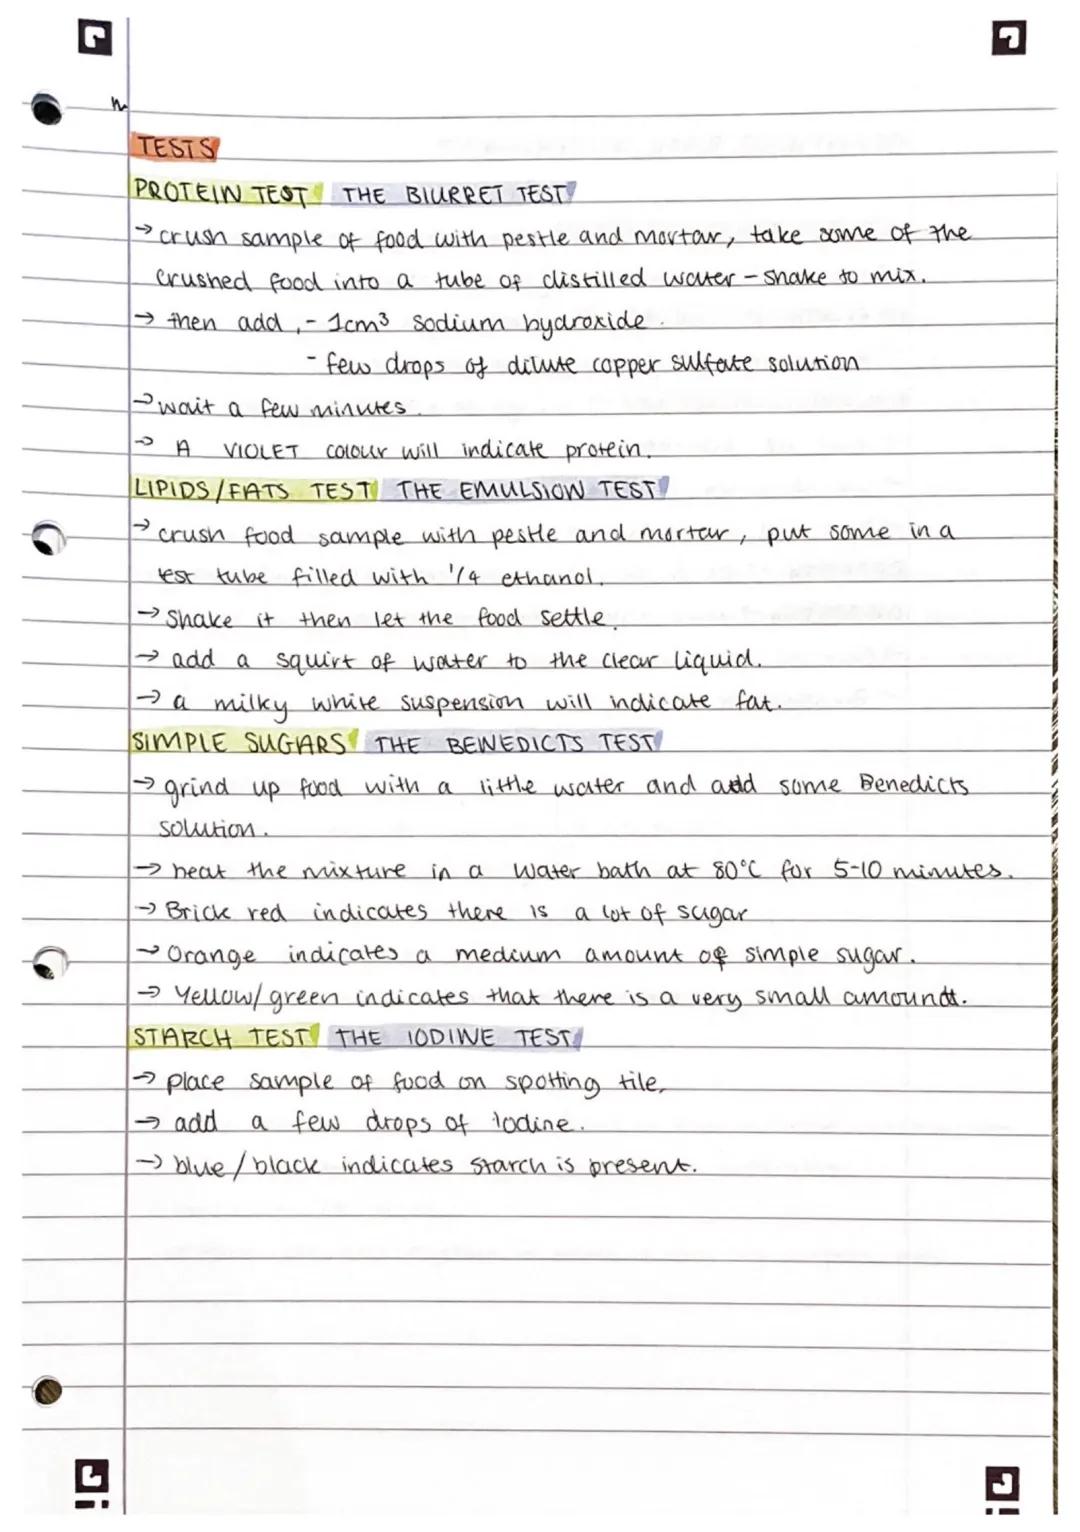 TESTS
PROTEIN TEST THE BIURRET TEST
→ crush sample of food with pestle and mortar, take some of the
crushed food into a tube of distilled water - shake to mix.
→ then add, - 1cm³ sodium hydroxide.
- few drops of dilute copper sulfate solution
→ wait a few minutes.
→ A VIOLET colour will indicate protein.
LIPIDS/FATS TEST THE EMULSION TEST
→ crush food sample with pestle and mortar, put some in a
test tube filled with 1/4 ethanol.
→ Shake it then let the food settle.
→ add a squirt of water to the clear liquid.
→ a milky white suspension will indicate fat.
SIMPLE SUGARS THE BENEDICTS TEST
→ grind up food with a little water and add some Benedicts
solution.
→ heat the mixture in a water bath at 80°C for 5-10 minutes.
→ Brick red indicates there is a lot of sugar
→ Orange indicates a medium amount of simple sugar.
→ Yellow/green indicates that there is a very small amount.
STARCH TEST THE IODINE TEST
→ place sample of food on spotting tile,
→ add a few drops of iodine.
→ blue/black indicates starch is present.